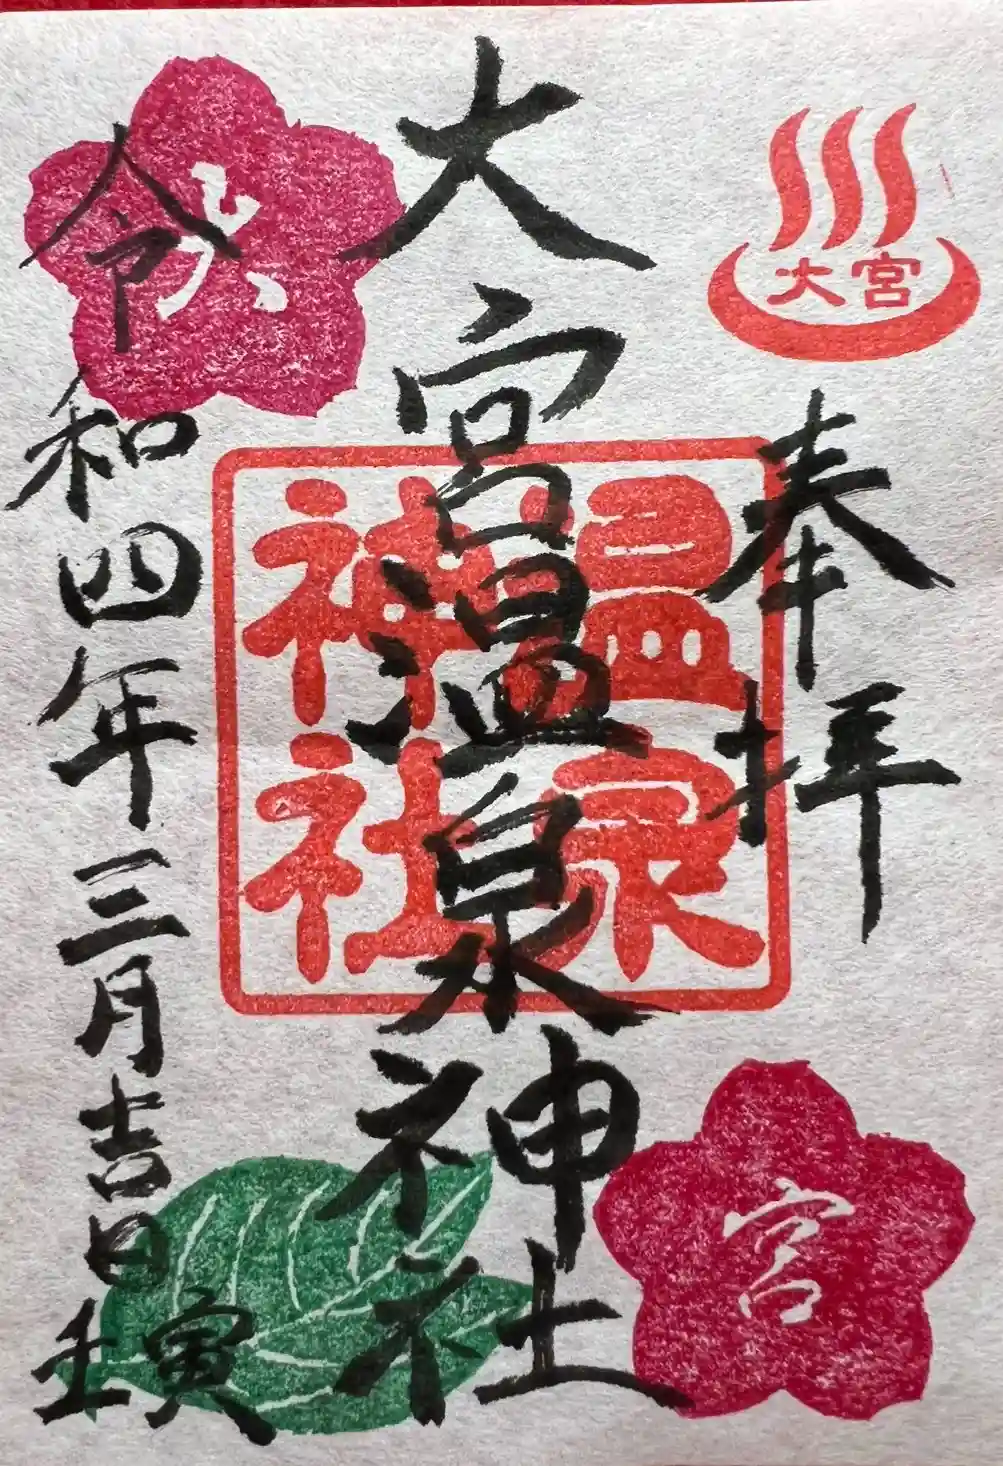 大宮
奉拝
大宮温泉神社
温泉
神社
令和四年三月吉日
壬寅
宮